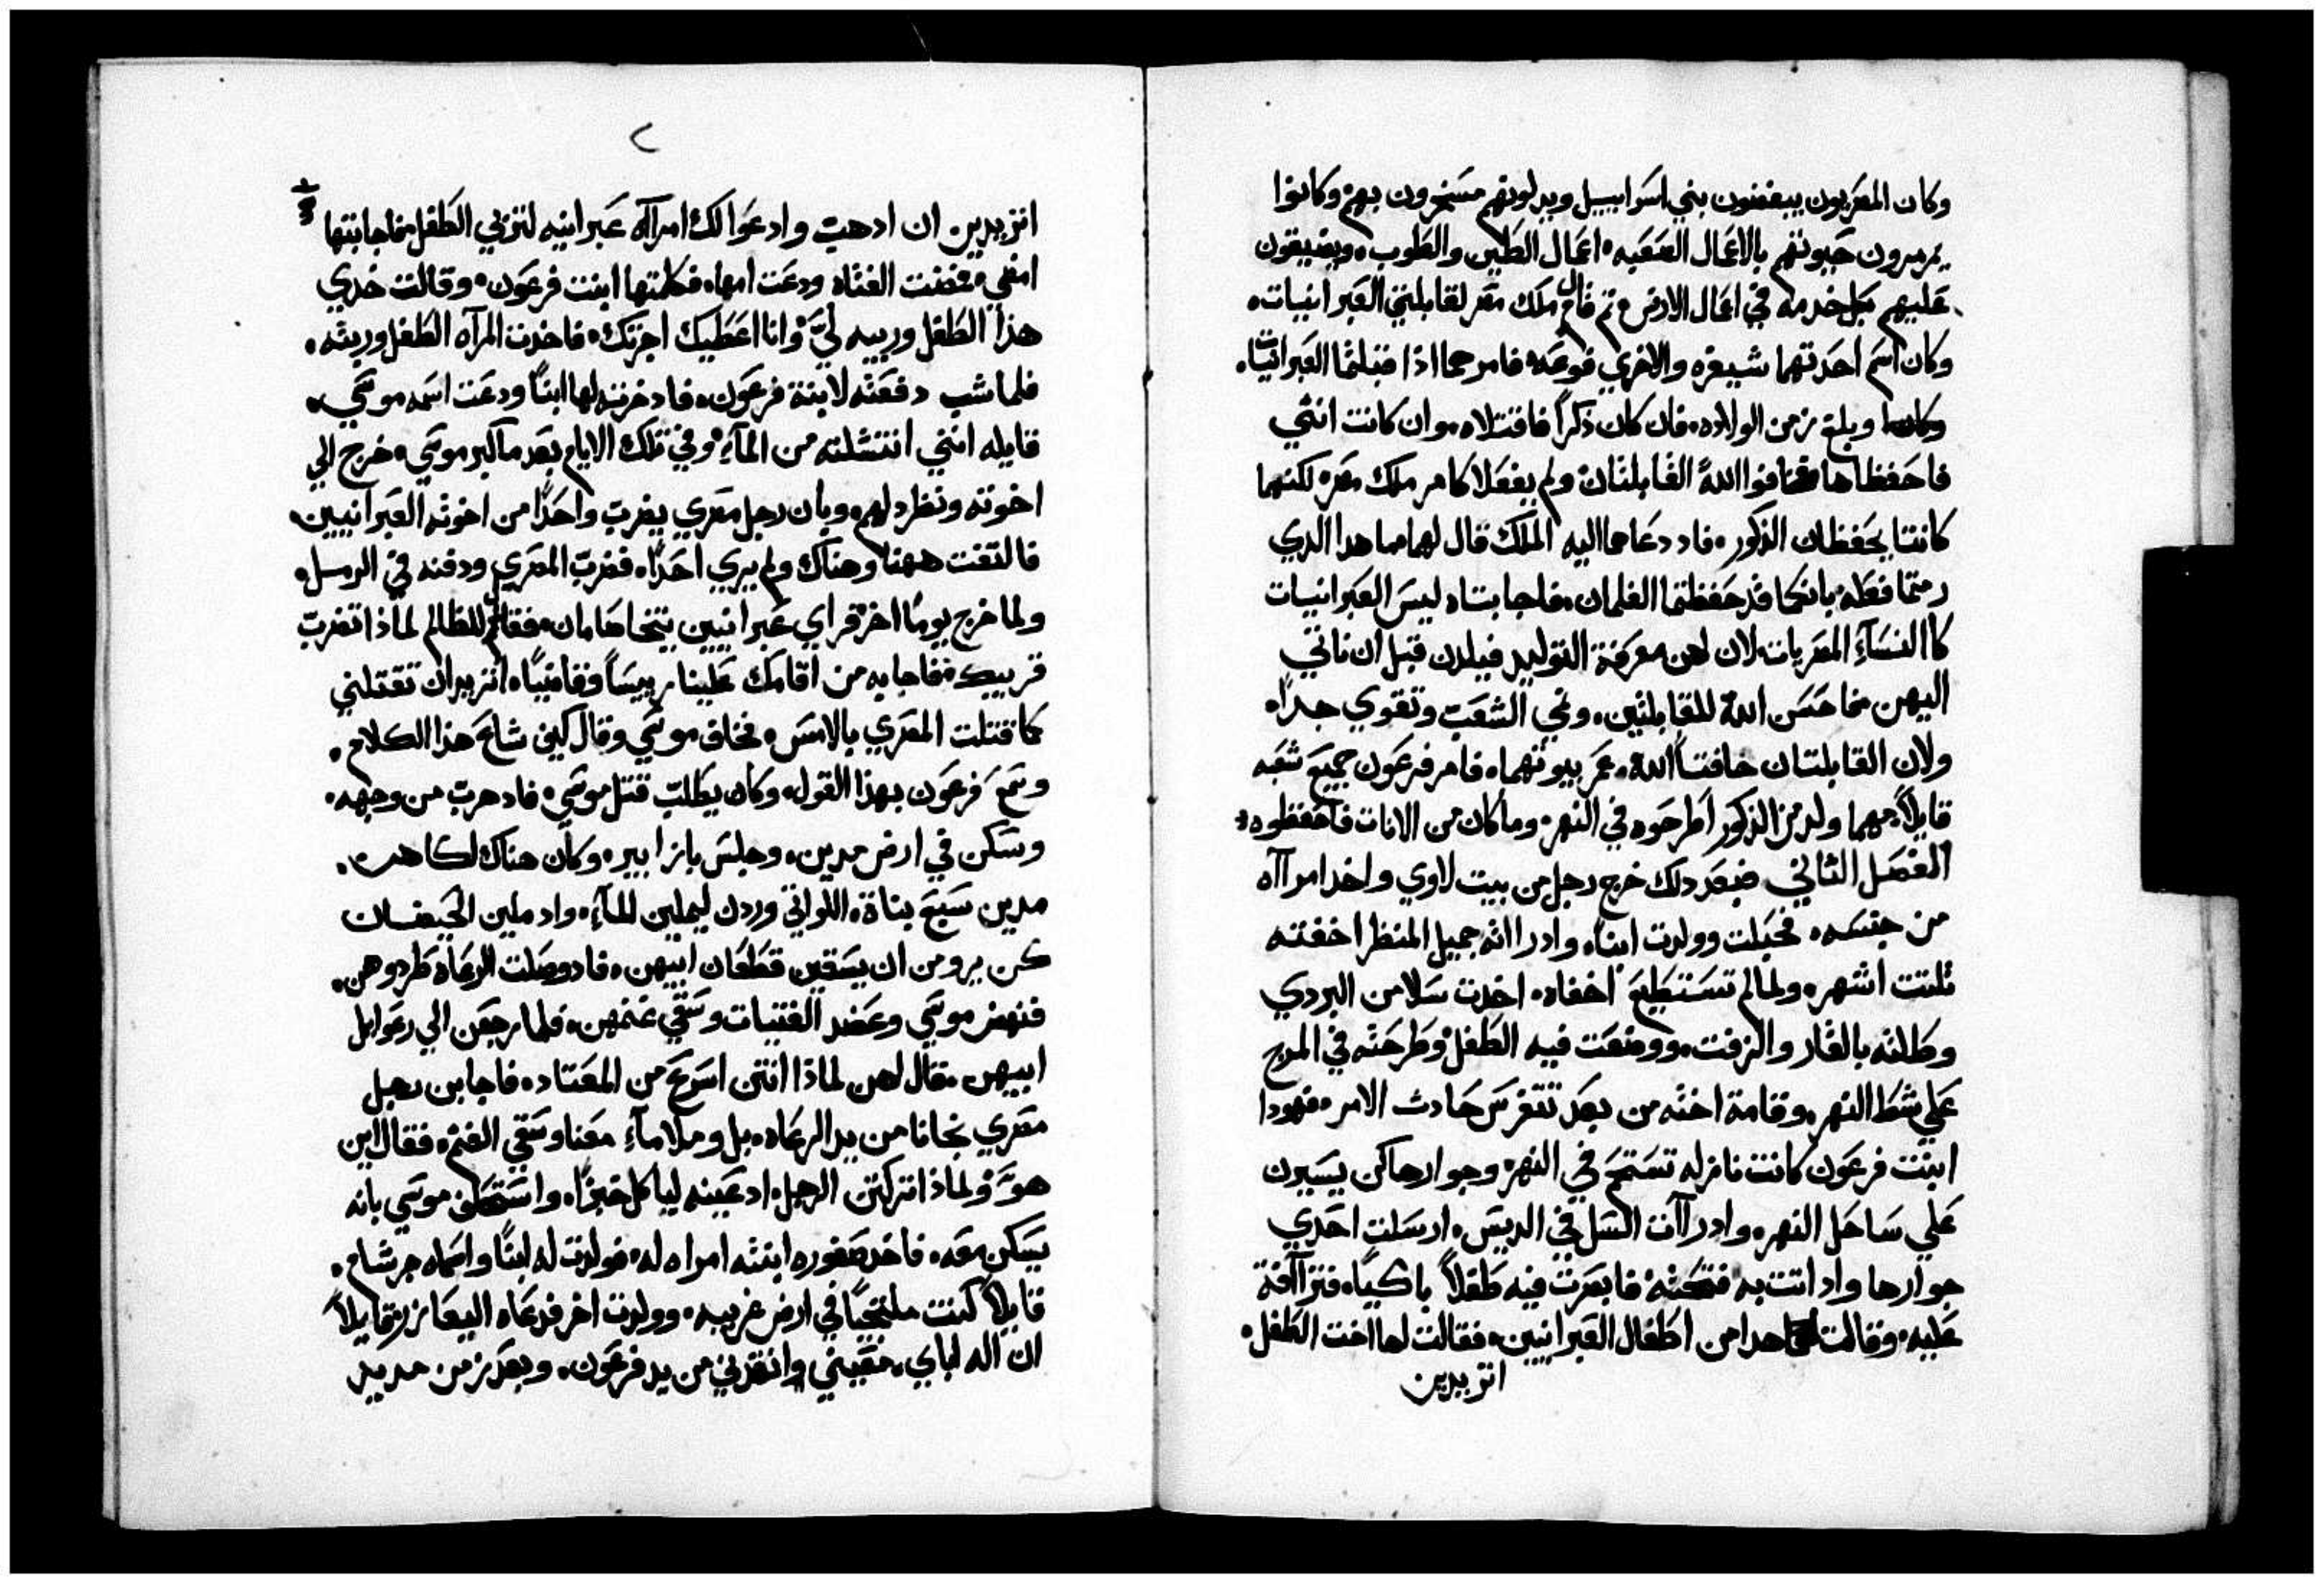 وكان المصريون يبغضون بني اسراييل ويدلونهم مسخرون بهم وكانوا
يمرمرون حيوتهم بالاعمال الصعبه اعمال الطين والطوب ويضيقون
عليهم بكل خدمه في اعمال الارض ثم قال ملك مصر لقابلتي العبرانيات
وكان اسم احدتهما شيفره والاخري فوعه فامرهما اذا قبلتما العبرانيات
وبلغ زمن الولاده فان كان ذكراً فاقتلاه وان كانت انثي
فاحفظاها فخافوا الله القابلتان ولم يفعلا كامر ملك مصر لكنهما
كانتا يحفظان الذكور فاد دعاهما اليه الملك قال لهما ما هدا الدي
رمتما فعله بانكما قد حفظتما الغلمان فاجابتاه ليس العبرانيات
كاالنسآء المصريات لان لهن معرفة التوليد فيلدن قبل ان ناتي
اليهن فاحسن الله للقابلتين ونمي الشعب وتقوي جداً
ولان القابلتان خافتا الله عمر بيوتهما فامر فرعون جميع شعبه
قايلاً مهما ولد من الذكور اطرحوه في النهر وما كان من الانات فاحفظوه
الفصل الثاني فبعد دلك خرج رجل من بيت لاوي واخد امراآه
من جنسه فحبلت وولدت ابناً وادراانه جميل المنظر اخفته
تلتت اشهر ولما لم تستطيع اخفاه اخدت سلا من البردي
وطلته بالقار والزفت ووضعت فيه الطفل وطرحته في المرج
علي شط النهر وقامة اخته من بعد تتفرس حادث الامر فهودا
ابنت فرعون كانت نازله تستحم في النهر وجوارها كن يسيرن
علي ساحل النهر وادراآت السل في الديس ارسلت احدي
جوارها واد اتت به فتحته فابصرت فيه طفلاً باكياً فتراآفة
عليه وقالت هدا من اطفال العبرانيين فقالت لها اخت الطفل
اتريدين
٢
اتريدين ان ادهب وادعوا لك امراآه عبرانيه لتربي الطفل فاجابتها
امضي فمضت الفتاه ودعت امها فكلمتها ابنت فرعون وقالت خدي
هذا الطفل وربيه لي وانا اعطيك اجرتك فاخدت المرآه الطفل وربته
فلما شب دفعته لابنة فرعون فادخرته لها ابناً ودعت اسمه موسي
قايله انني انتشلته من المآء وفي تلك الايام بعد ما كبر موسي خرج الي
اخوته ونظر دلهم وبان رجل مصري يضرب واحداً من اخوته العبرانيين
فالتفت ههنا وهناك ولم يري احداً فضرب المصري ودفنه في الرمل
ولما خرج يوماً اخر فراي عبرانيين يتخاصمان فقال للظالم لماذا تضرب
قريبك فاجابه من اقامك علينا رييساً وقاضياً اتريد ان تقتلني
كما قتلت المصري بالامس فخاف موسي وقال كيف شاع هذا الكلام
وسمع فرعون بهذا القول وكان يطلب قتل موسي فاد هرب من وجهه
وسكن في ارض مدين وجلس بازا بير وكان هناك لكاهن
مدين سبع بناة اللواتي وردن ليملين للمآء واد ملين الحيضان
كن يرومن ان يسقين قطعان ابيهن فاد وصلت الرعاة طردوهن
فنهض موسي وعضد الفتيات وسقي غنمهن فلما رجعن الي رعوايل
ابيهن قال لهن لماذا اتتن اسرع من المعتاد فاجابن رجل
مصري نجانا من يد الرعاه بل وملا مآء معنا وسقي الغنم فقال اين
هو ولماذا تركتن الرجل ادعينه لياكل خبزاً واستحلف موسي بانه
يسكن معه فاخد صفوره ابنته امراه له فولدت له ابناً واسماه جرشام
قايلاً كنت ملتجياً في ارض غريبه وولدت اخر فدعاه اليعازر قايلاً
ان اله اباي معيني وانقدني من يد فرعون وبعد زمن مديد